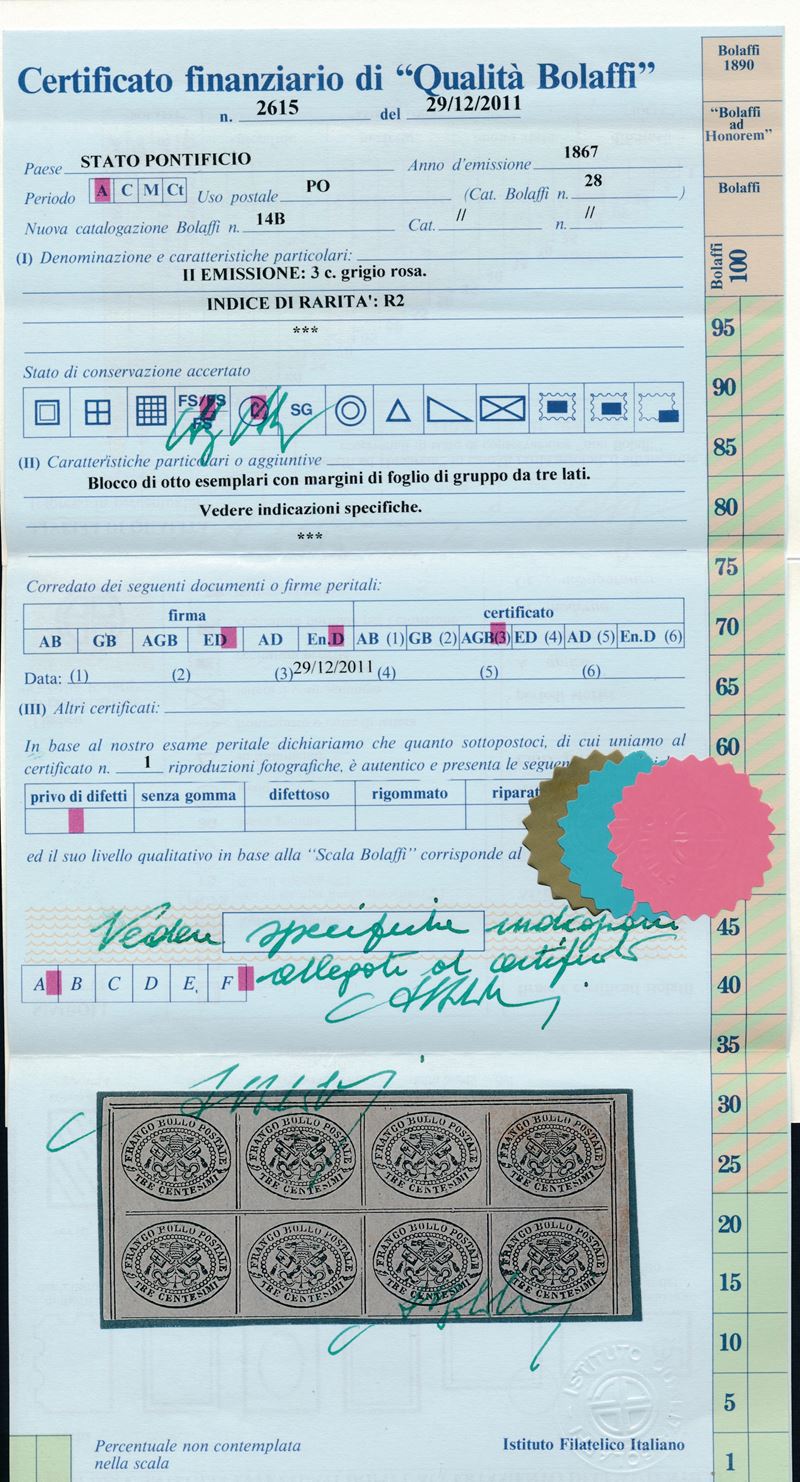 Certificato finanziario di “Qualità Bolaffi”
n. 2615 del 29/12/2011
Paese STATO PONTIFICIO Anno d'emissione 1867
Periodo A C M Ct Uso postale PO (Cat. Bolaffi n. 28 )
Nuova catalogazione Bolaffi n. 14B Cat. // n. //
(I) Denominazione e caratteristiche particolari:
II EMISSIONE: 3 c. grigio rosa.
INDICE DI RARITA': R2
***
Stato di conservazione accertato
FS/FS SG
FS
(II) Caratteristiche particolari o aggiuntive
Blocco di otto esemplari con margini di foglio di gruppo da tre lati.
Vedere indicazioni specifiche.
***
Corredato dei seguenti documenti o firme peritali:
firma certificato
AB GB AGB ED AD En.D AB (1) GB (2) AGB(3) ED (4) AD (5) En.D (6)
Data: (1) (2) (3) 29/12/2011 (4) (5) (6)
(III) Altri certificati:
In base al nostro esame peritale dichiariamo che quanto sottopostoci, di cui uniamo al
certificato n. 1 riproduzioni fotografiche, è autentico e presenta le
privo di difetti senza gomma difettoso rigommato
ed il suo livello qualitativo in base alla “Scala Bolaffi” corrisponde al
Vedere specifiche indicazioni
allegate al certificato
A B C D E, F
FRANCO BOLLO POSTALE FRANCO BOLLO POSTALE FRANCO BOLLO POSTALE FRANCO BOLLO POSTALE
TRE CENTESIMI TRE CENTESIMI TRE CENTESIMI TRE CENTESIMI
FRANCO BOLLO POSTALE FRANCO BOLLO POSTALE FRANCO BOLLO POSTALE FRANCO BOLLO POSTALE
TRE CENTESIMI TRE CENTESIMI TRE CENTESIMI TRE CENTESIMI
Percentuale non contemplata
nella scala
Istituto Filatelico Italiano
Bolaffi
1890
“Bolaffi
ad
Honorem”
Bolaffi
Bolaffi
100
95
90
85
80
75
70
65
60
45
40
35
30
25
20
15
10
5
1